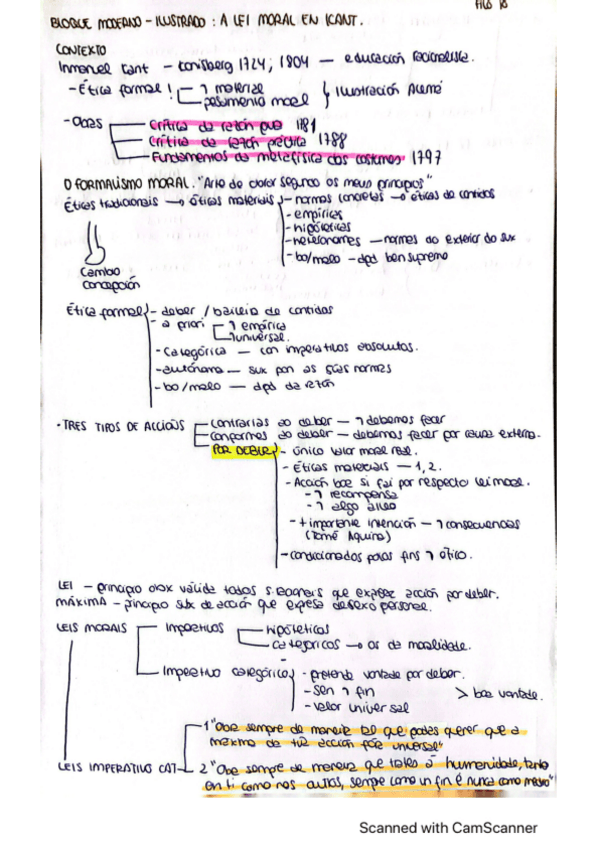 FILO 10
BLOQUE MODERNO - ILUSTRADO: A LEI MORAL EN KANT.
CONTEXTO
Inmanuel Kant - Konisberg 1724; 1804 - educación racionalista.
- Ética formal ¬ material
¬ pensamento moral
Ilustración Alemá
- Obras
Crítica da razón pura 1781
Crítica da razón práctica 1788
Fundamentos da metafísica dos costumes 1797
O FORMALISMO MORAL. "Arte de obrar segundo os meus principios"
Éticas tradicionais → éticas materiais - normas concretas → éticas de contidos
- empíricas
- hipotéticas
- heterónomas - normas do exterior do sux
- bo/malo - dpd ben supremo
Cambio
concepción
Ética formal - deber / baleira de contidos
- a priori ¬ empírica
universal.
- Categórica - con imperativos absolutos.
- autónoma - sux pon as súas normas
- bo/malo - dpd da razón
- TRES TIPOS DE ACCIÓNS
Contrarias ao deber - ¬ debemos facer
Conformes ao deber - debemos facer por causa externa.
POR DEBER - único valor moral real.
- Éticas materiais - 1, 2.
- Acción boa si fai por respecto lei moral.
- ¬ recompensa
- ¬ algo alleo
- + importante intención - ¬ consecuencias
(Tomé Aquino)
- condicionados polos fins ¬ ético.
LEI - principio obx válido todos s. racionais que expresa acción por deber.
MÁXIMA - principio sux de acción que expresa desexo persoal.
LEIS MORAIS
Imperativos
hipotéticos
categóricos → os da moralidade.
Imperativo categórico - pretende vontade por deber.
- Sen ¬ fin
> boa vontade.
- valor universal
LEIS IMPERATIVO CAT
1 "Obra sempre de maneira tal que podas querer que a
máxima da túa acción sexa universal"
2 "Obra sempre de maneira que trates á humanidade, tanto
en ti como nos outros, sempre como un fin e nunca como medio"
Scanned with CamScanner